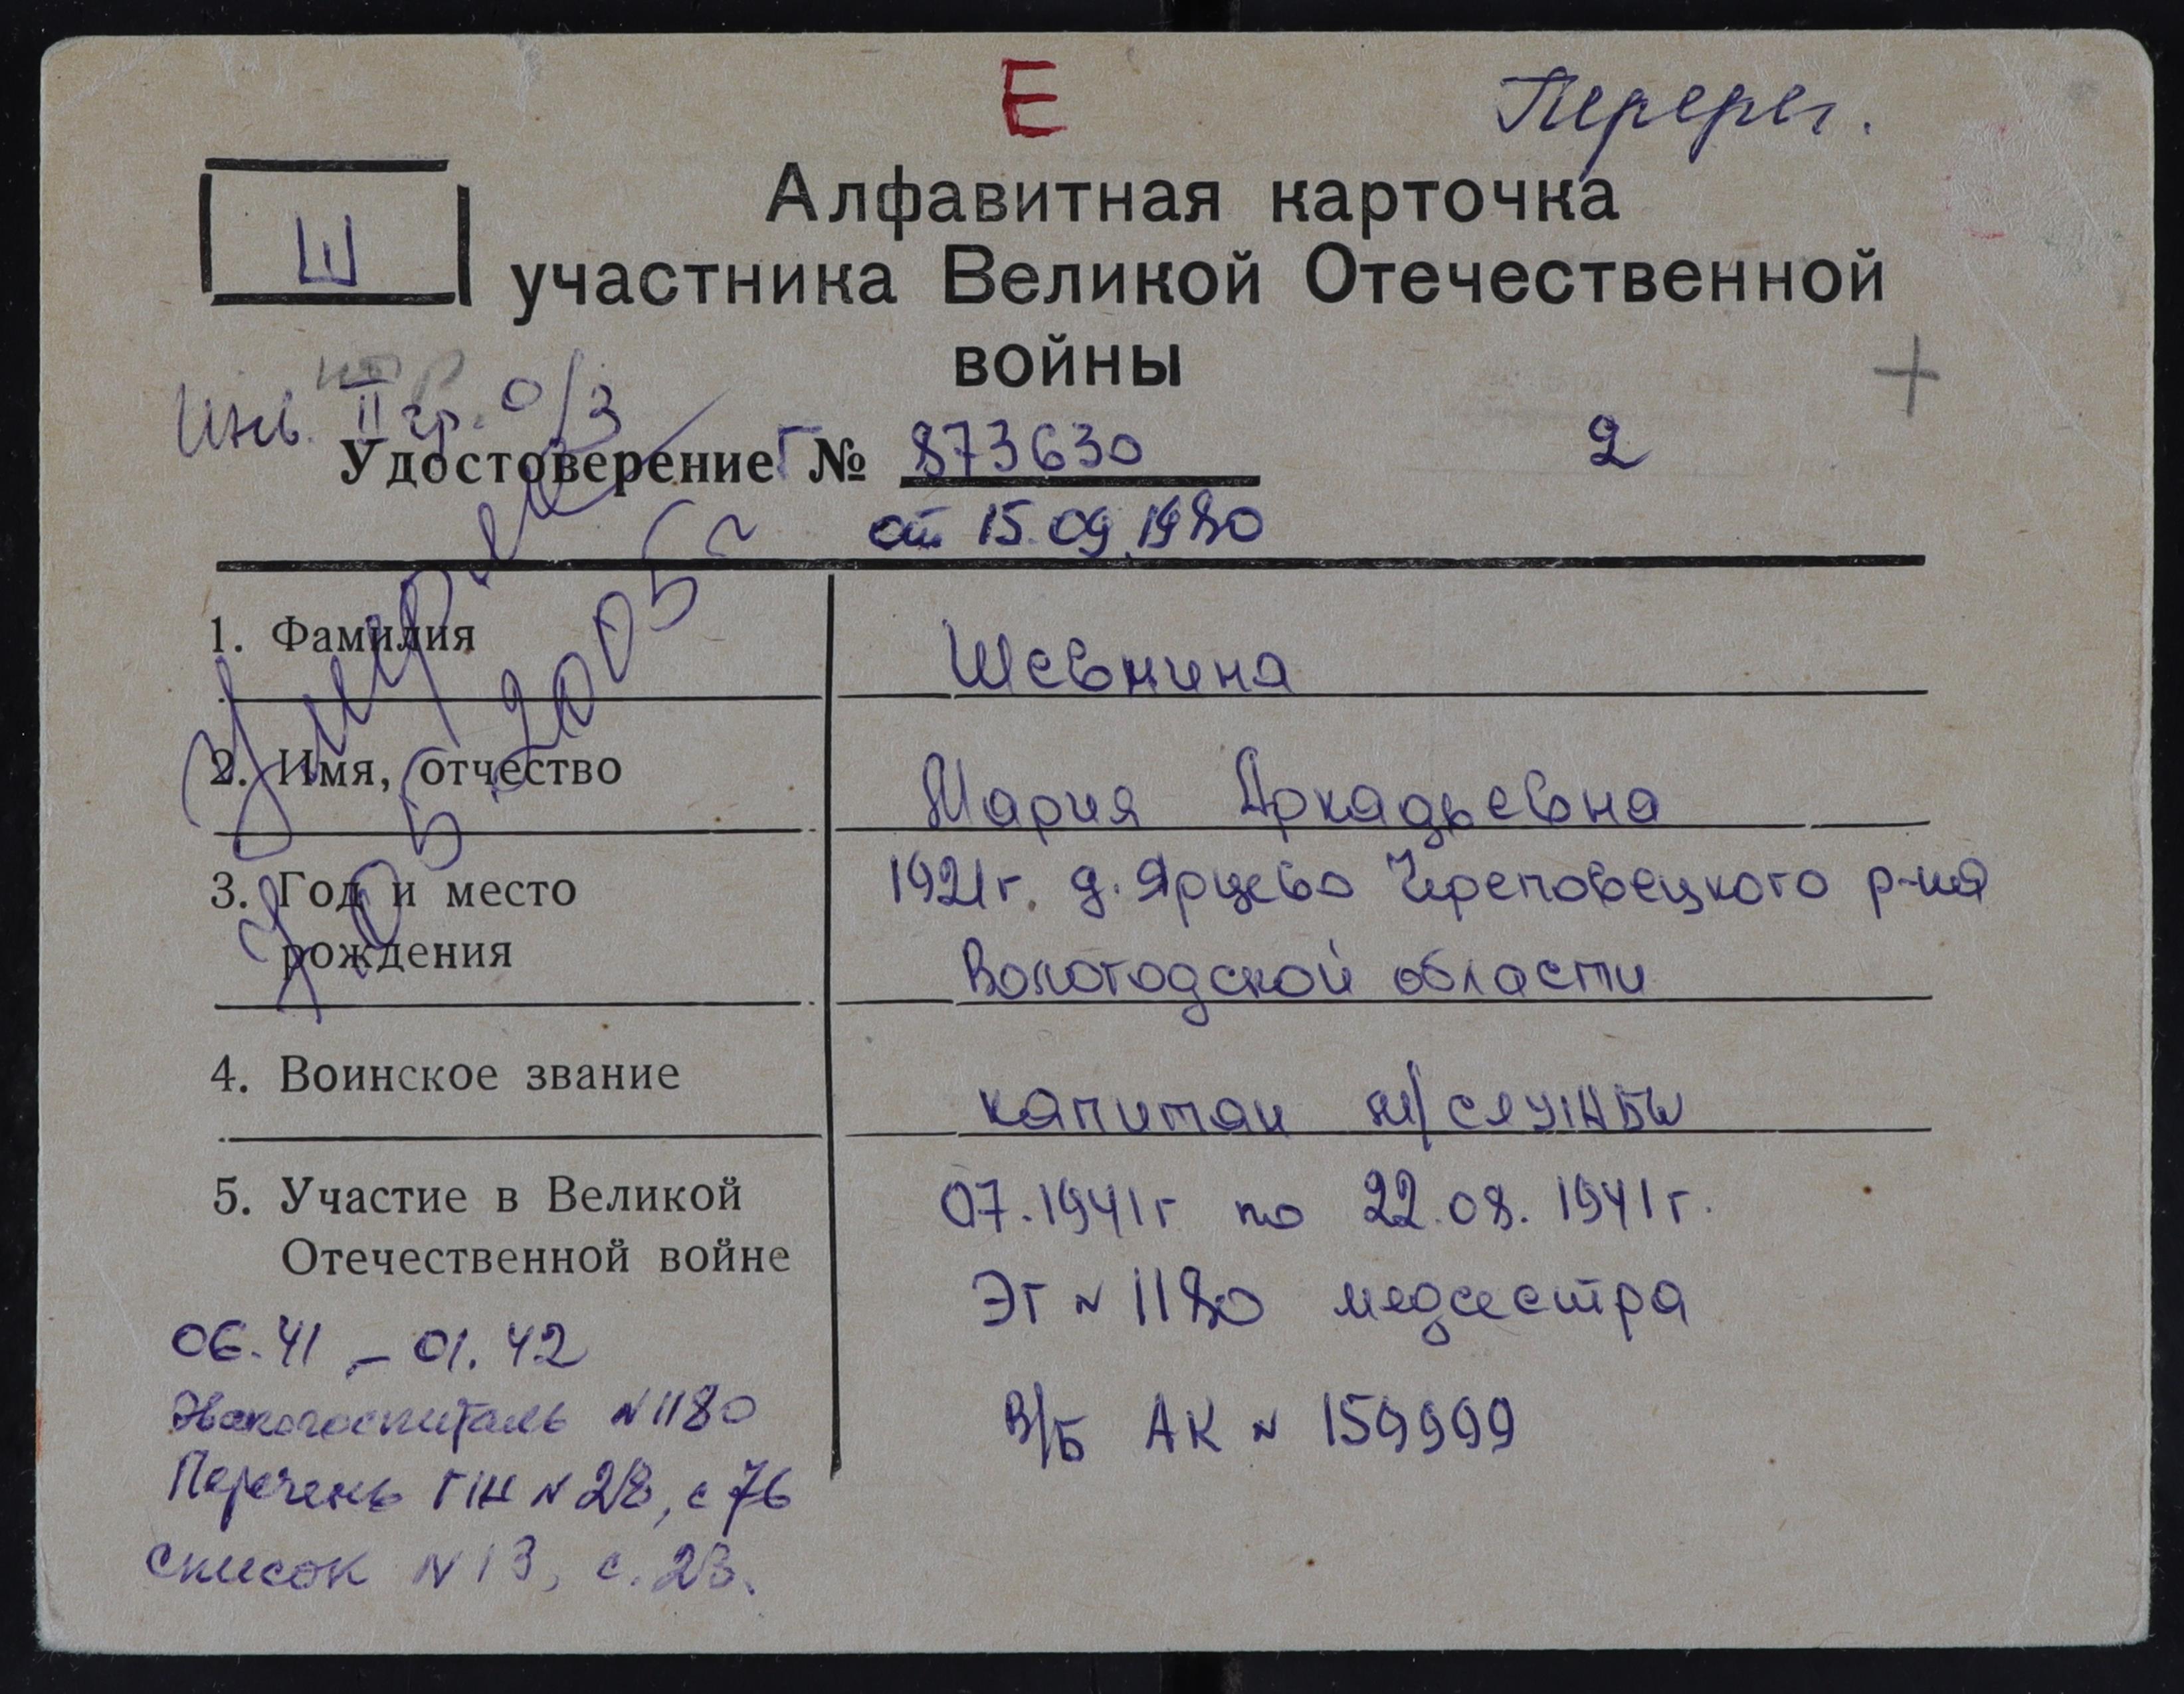 Е
Перерег.
Ш
Алфавитная карточка
участника Великой Отечественной
войны
Инв. II гр. о/з
2
Удостоверение Г № 873630
от 15.09.1980
Умерла
05.2005г
1. Фамилия
Шевнина
2. Имя, отчество
Мария Аркадьевна
3. Год и место
рождения
1921г. д. Ярцево Череповецкого р-на
Вологодской области
4. Воинское звание
капитан м/службы
5. Участие в Великой
Отечественной войне
07.1941г по 22.08.1941г.
ЭГ № 1180 медсестра
В/Б АК № 159999
06.41 – 01.42
Эвакогоспиталь №1180
Перечень ГШ № 28, с 76
список № 13, с. 23.